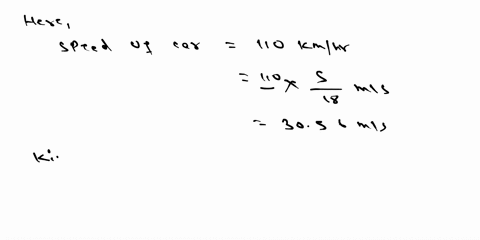 Here,
speed of car = 110 km/hr
= 110 × 5/18 m/s
= 30.56 m/s
Ki..